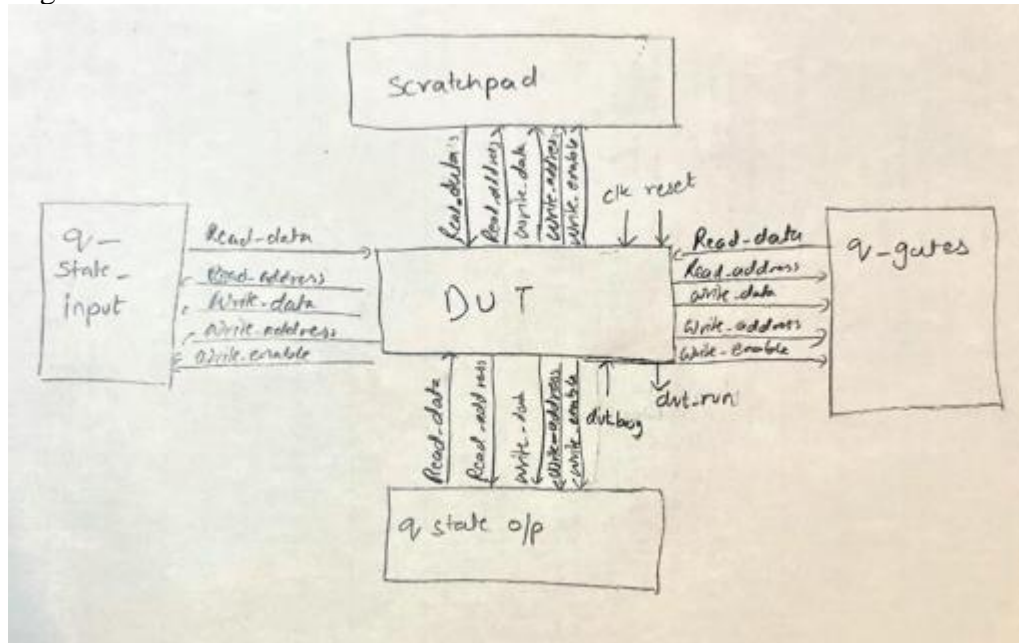 Scratchpad
Read_data
Read_address
Write_data
Write_address
Write_enable
clk reset
q_
State_
input
Read_data
Read_address
Write_data
Write_address
Write_enable
DUT
Read_data
Read_address
Write_data
Write_address
Write_enable
q_gates
Read_data
Read_address
Write_data
Write_address
Write_enable
dut_run
q state o/p